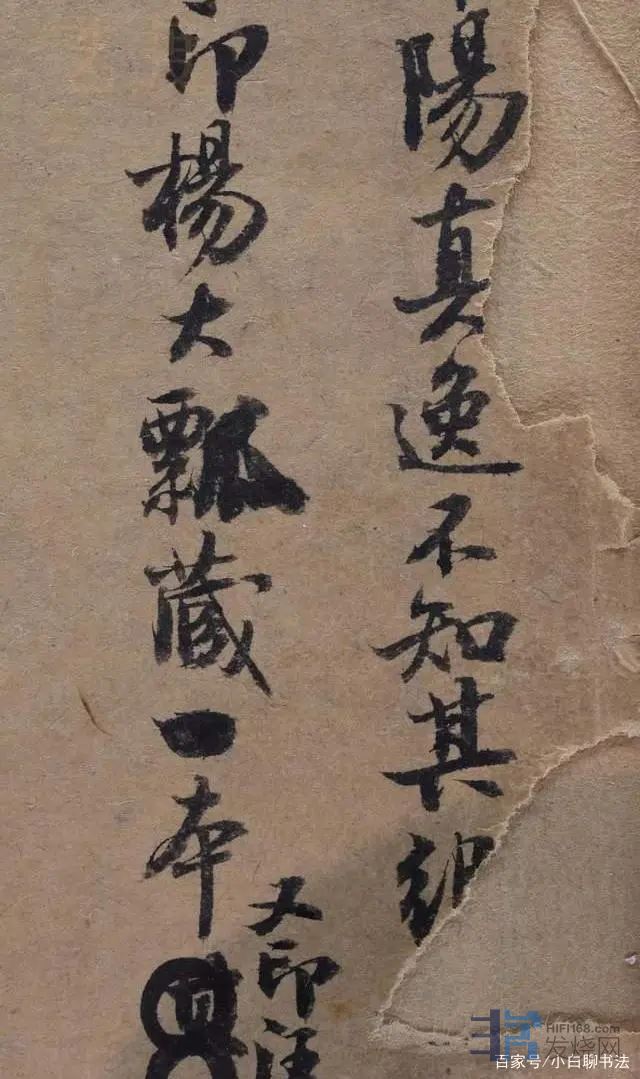 陽真逸不知其
印楊大瓢藏一本
又印
HIFI168.com
发烧网
百家号/小白聊书法